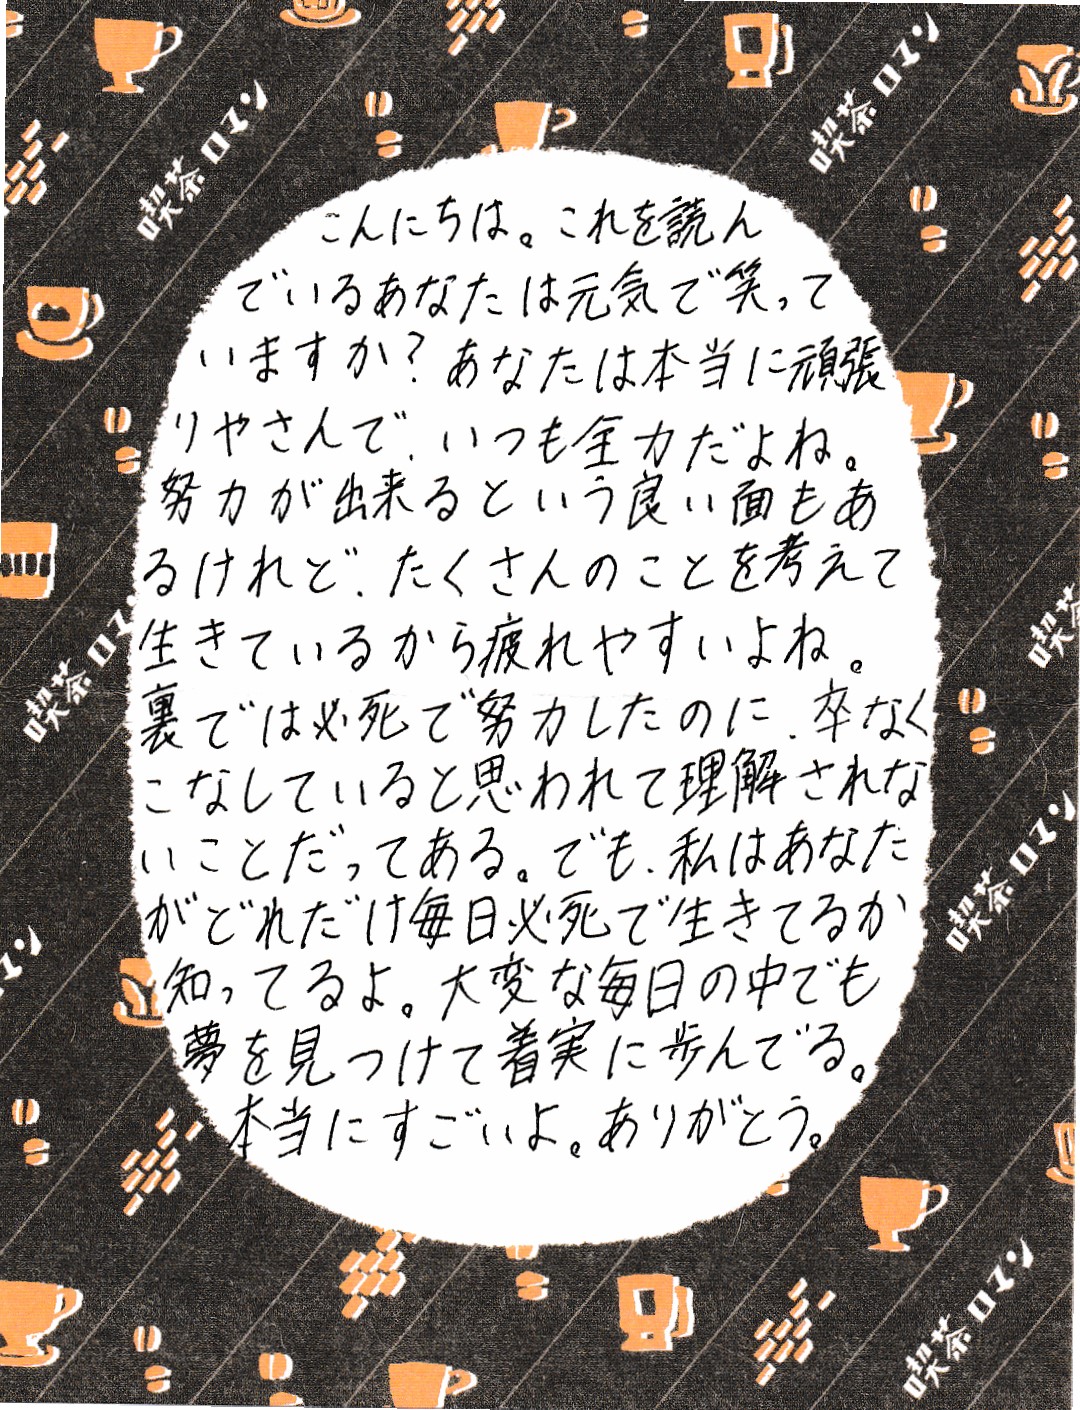 こんにちは。これを読ん
でいるあなたは元気で笑って
いますか？あなたは本当に頑張
りやさんで、いつも全力だよね。
努力が出来るという良い面もあ
るけれど、たくさんのことを考えて
生きているから疲れやすいよね。
裏では必死で努力したのに、卒なく
こなしていると思われて理解されな
いことだってある。でも、私はあなた
がどれだけ毎日必死で生きてるか
知ってるよ。大変な毎日の中でも
夢を見つけて着実に歩んでる。
本当にすごいよ。ありがとう。
喫茶ロマン
喫茶ロマン
喫茶ロマン
喫茶
喫茶ロマン
マン
喫茶ロマン